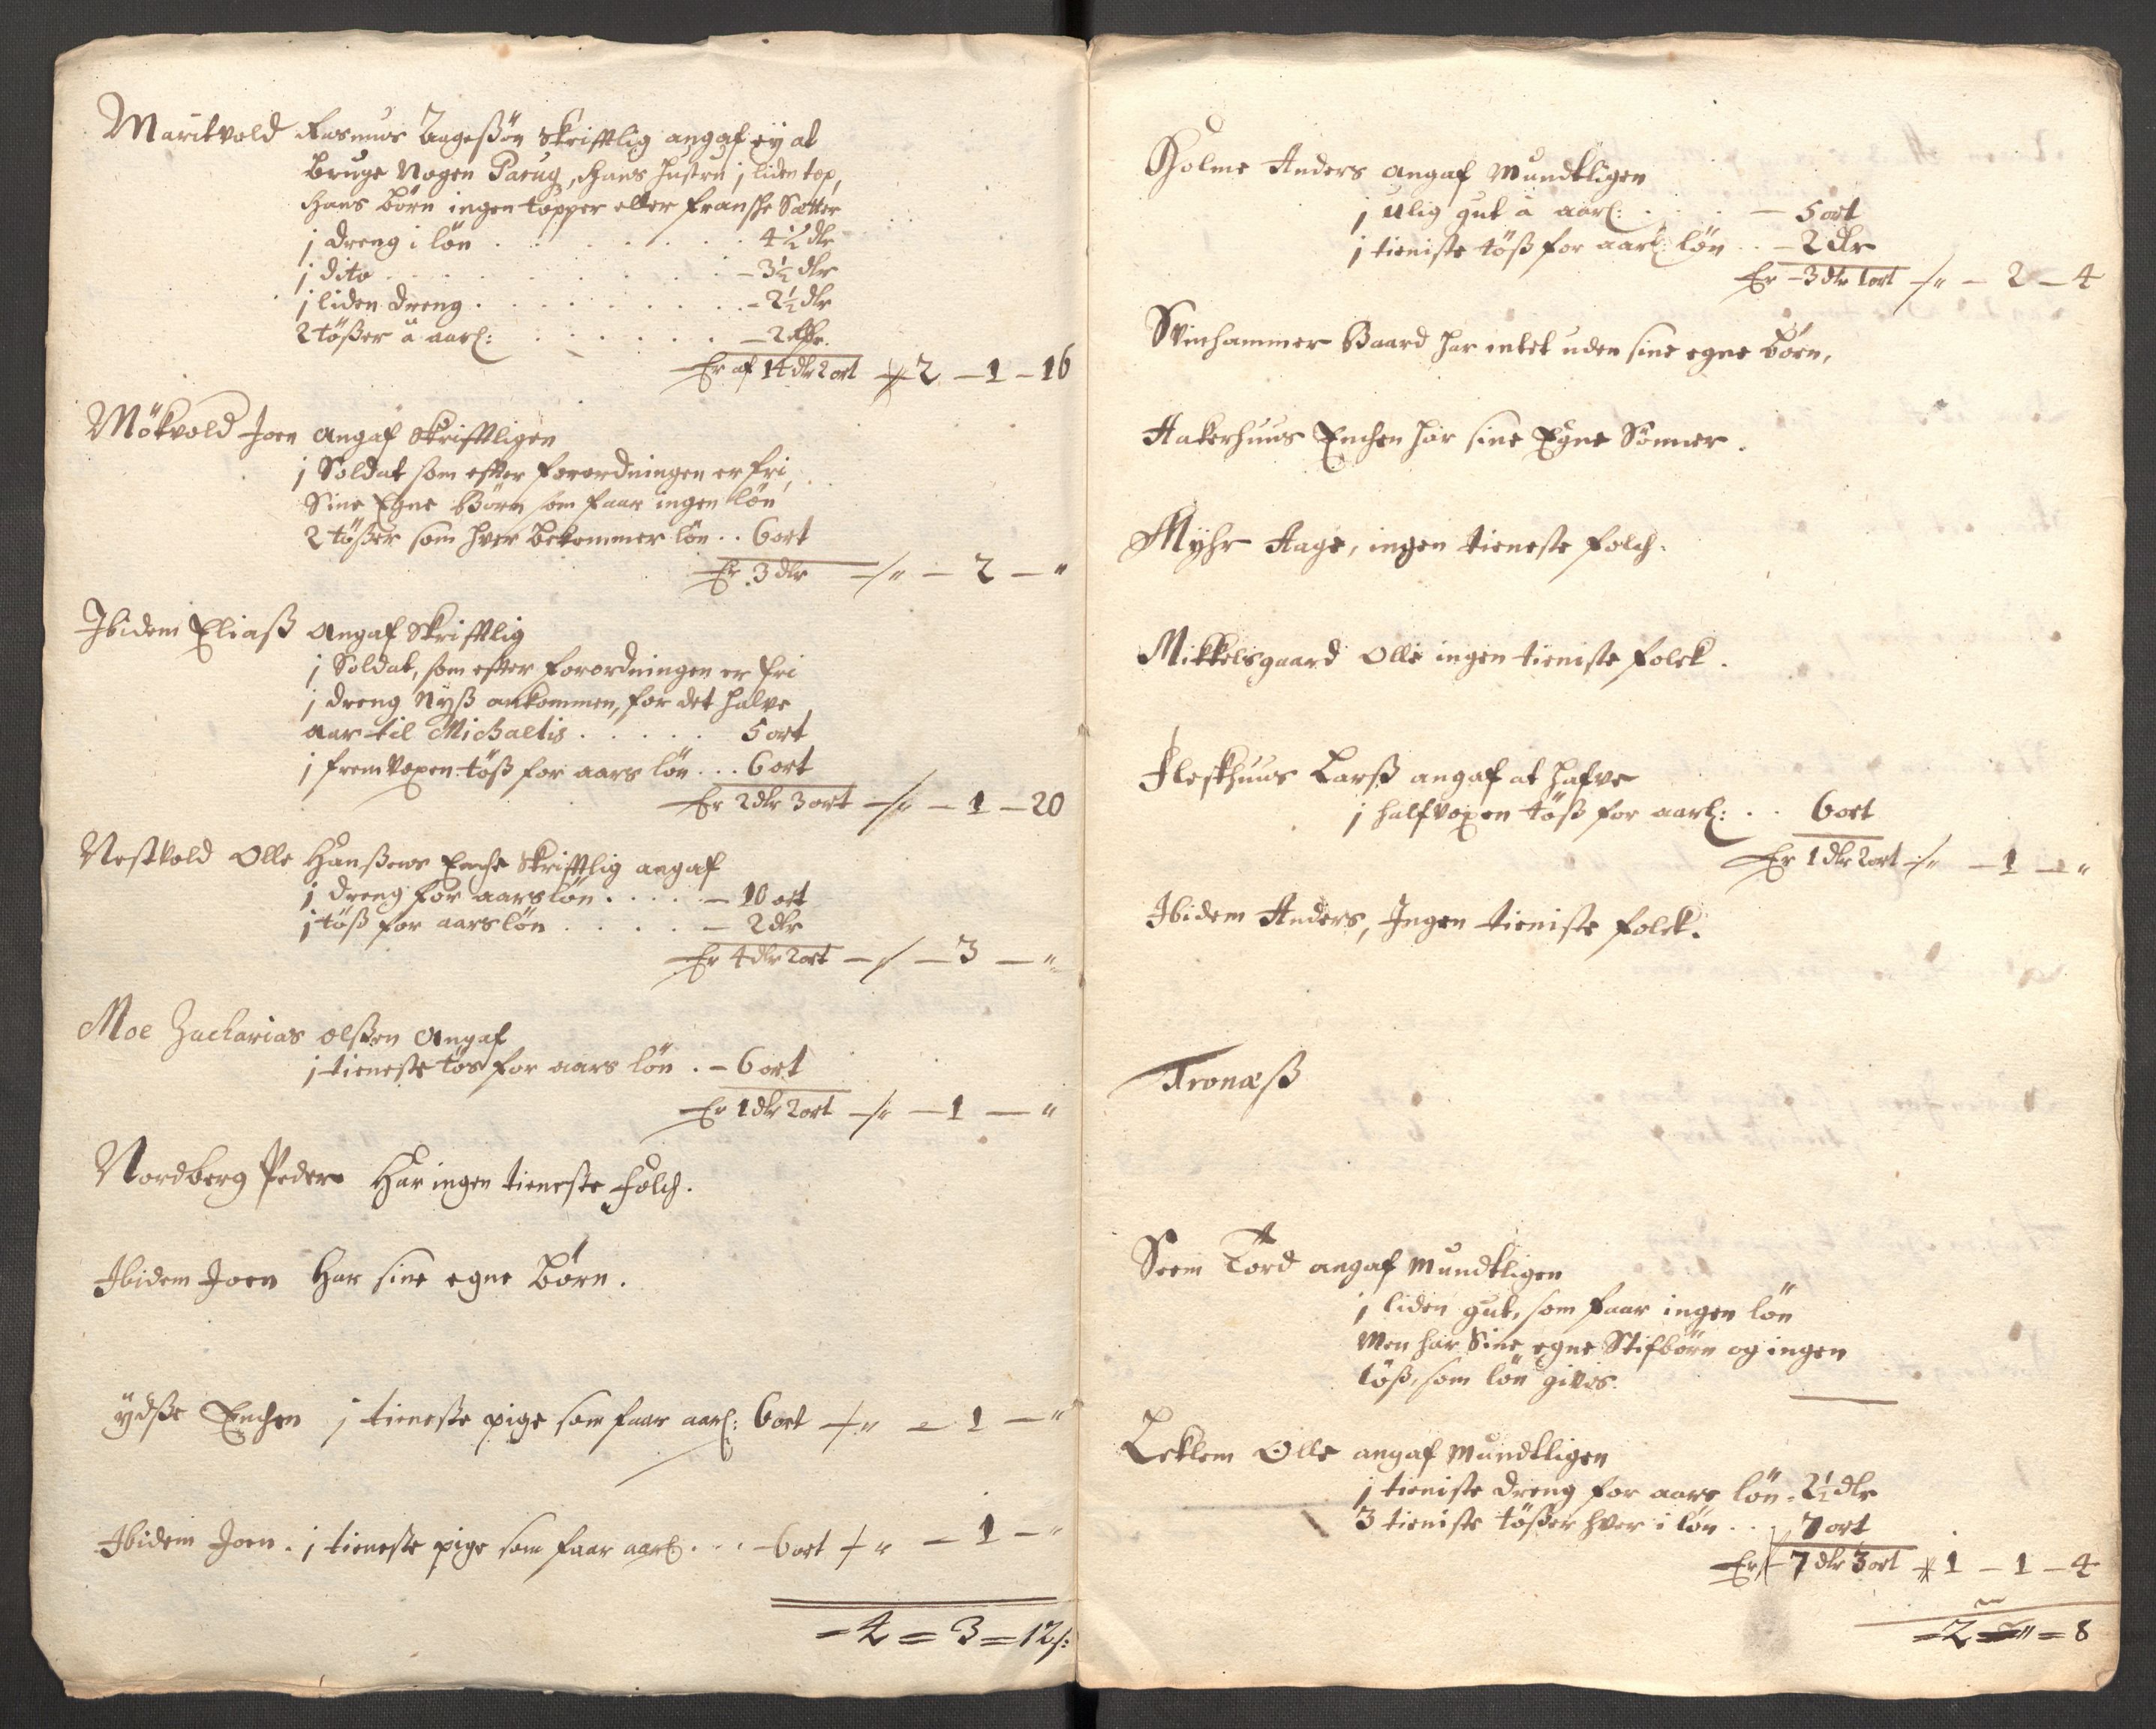 Maritvold Rasmus Aagesßön skrifftlig angaf ey at
bruge Nogen Paruq, Hans Hustru j liden top,
Hans börn ingen topper eller franshe Sætter
j dreng i lön . . . . . . . 4½ dlr
j dito . . . . . . . – 3½ dlr
j liden dreng . . . . . . . – 2½ dlr
2 tößer â aarl: . . . . . . – 2 dlr.
Er af 14 dlr 2 ort – 2 – 1 – 16
Mökvold Joen angaf Skrifftligen
j Soldat som efter forordningen er fri,
Sine Egne Börn som faar ingen lön
2 tößer som hver bekommer lön . . 6 ort
Er 3 dlr –/" – 2 – "
Ibidem Eliaß angaf Skrifftlig
j Soldat, som efter forordningen er fri
j dreng Nyß ankommen, for det halve
aar til Michaelis . . . . . 5 ort
j fremvoxen töß for aars lön . . . 6 ort
Er 2 dlr 3 ort –/" – 1 – 20
Nestvold Olle Hanßens Enche Skrifftlig angaf
j dreng for aars lön . . . . – 10 ort
j töß for aars lön . . . . – 2 dlr
Er 4 dlr 2 ort –/ – 3 – "
Moe Zacharias olßen angaf
j tieneste tös for aars lön . – 6 ort
Er 1 dlr 2 ort –/" – 1 – "
Nordberg Peder Har ingen tieneste folch.
Ibidem Joen Har sine egne Börn.
ydße Enchen j tieneste pige som faar aarl: 6 ort –/" – 1 – "
Ibidem Joen . j tieneste pige som faar aarl: . . . – 6 ort –/" – 1 – "
– 4 = 3 = 12 s:
Holme Anders angaf Mundtligen
j Ulig gut â aarl: . . . – 5 ort
j tieniste töß for aarl: lön . . – 2 dlr
Er – 3 dlr 1 ort –/" – 2 – 4
Svinhammer Baard har intet uden sine egne börn,
Aakerhuus Enchen har sine Egne Sönner.
Myhr Aage, ingen tieneste folch.
Mikkelsgaard Olle ingen tieniste folck.
Fleskhuus Larß angaf at hafve
j halfvoxen töß for aarl: . . 6 ort
Er 1 dlr 2 ort –/" – 1 – "
Ibidem Anders, Ingen tieniste folck.
Tronæß
Seem Tord angaf Mundtligen
j liden gut, som faar ingen lön
Men har Sine egne Stifbörn og ingen
töß, som lön gives.
Leklem Olle angaf Mundtligen
j tieniste dreng for aars lön – 2½ dlr
3 tieniste tößer hver i lön . . 7 ort
Er – 7 dlr 3 ort – 1 – 1 – 4
= 2 = " = 8